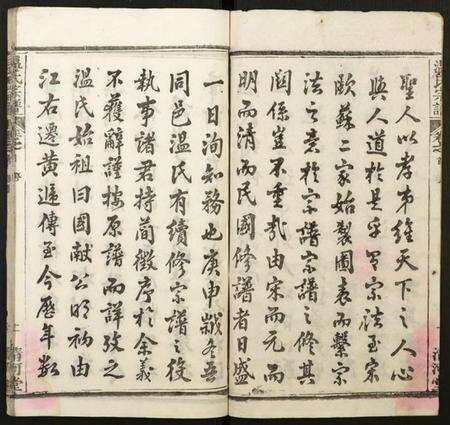 聖人以孝弟維天下之人心
與人道於是乎宗法至宋
歐蘇二家始製圖表而繫宗
法之意於宗譜宗譜之修其
關係豈不重哉由宋而元而
明而清而民國修譜者日盛
一日洵知務也庚申歲冬吾
同邑溫氏有續修宗譜之役
執事諸君持荀徵序於余義
不獲辭謹按原譜而詳攷之
溫氏始祖曰國獻公明初由
江右遷黃遞傳至今歷年數
溫氏宗譜
清河堂
溫氏宗譜
清河堂